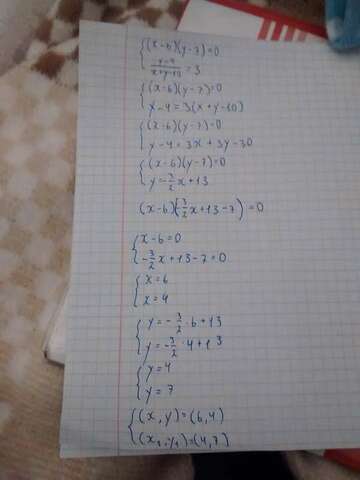 (x-6)(y-7)=0
y-4/x+y-10=3
(x-6)(y-7)=0
y-4=3(x+y-10)
(x-6)(y-7)=0
y-4=3x+3y-30
(x-6)(y-7)=0
y=-3/2x+13
(x-6)(-3/2x+13-7)=0
x-6=0
-3/2x+13-7=0
x=6
x=4
y=-3/2·6+13
y=-3/2·4+13
y=4
y=7
(x,y)=(6,4)
(x₂,y₂)=(4,7)